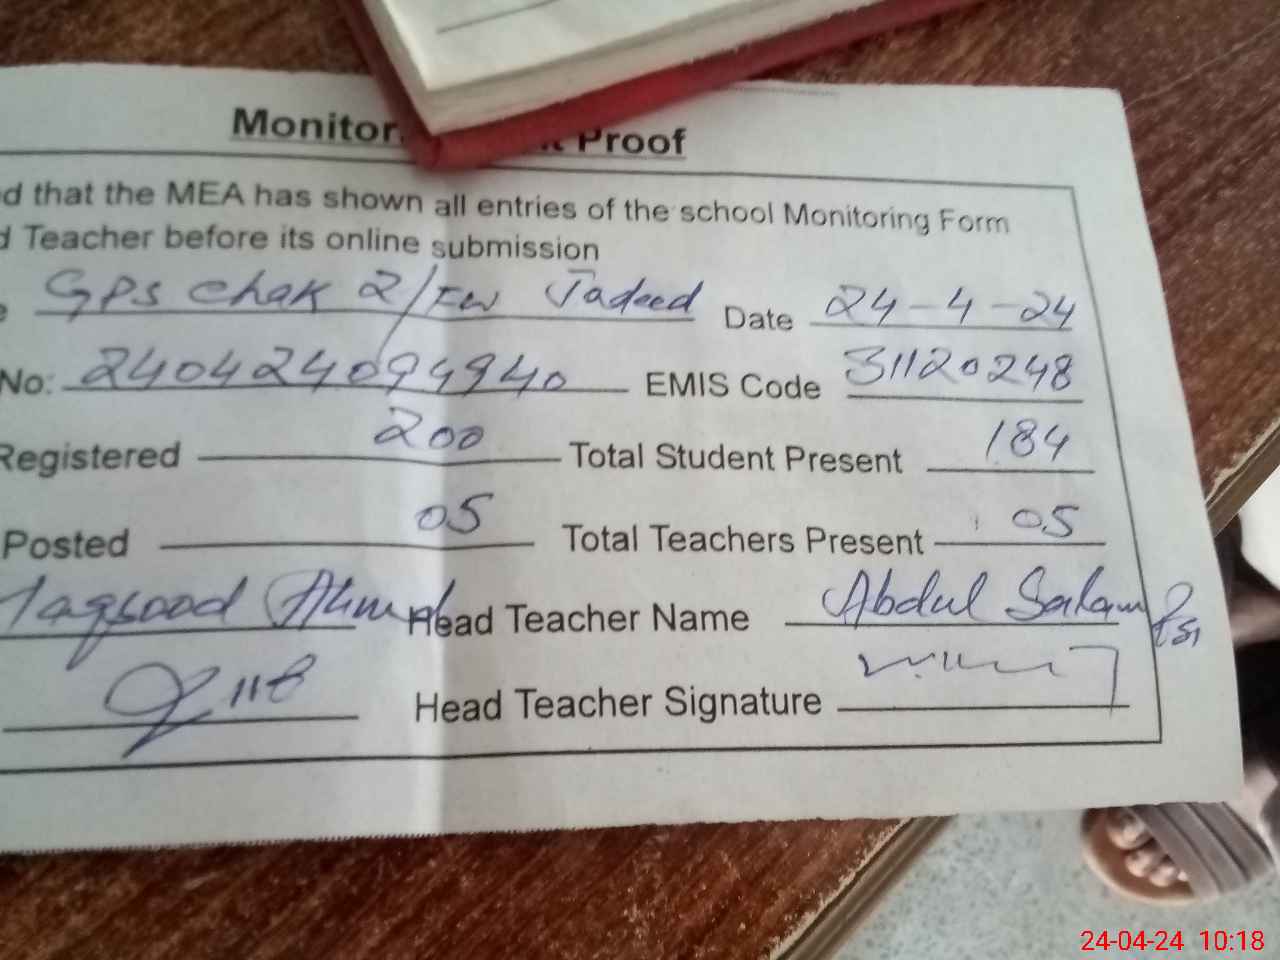 Monitor Proof
d that the MEA has shown all entries of the school Monitoring Form
d Teacher before its online submission
e GPS Chak 2/FW Jadeed Date 24-4-24
No: 240424094940 EMIS Code 31120248
Registered 200 Total Student Present 184
Posted 05 Total Teachers Present 05
Maqsood Ahmed Head Teacher Name Abdul Salam
118 Head Teacher Signature
24-04-24 10:18